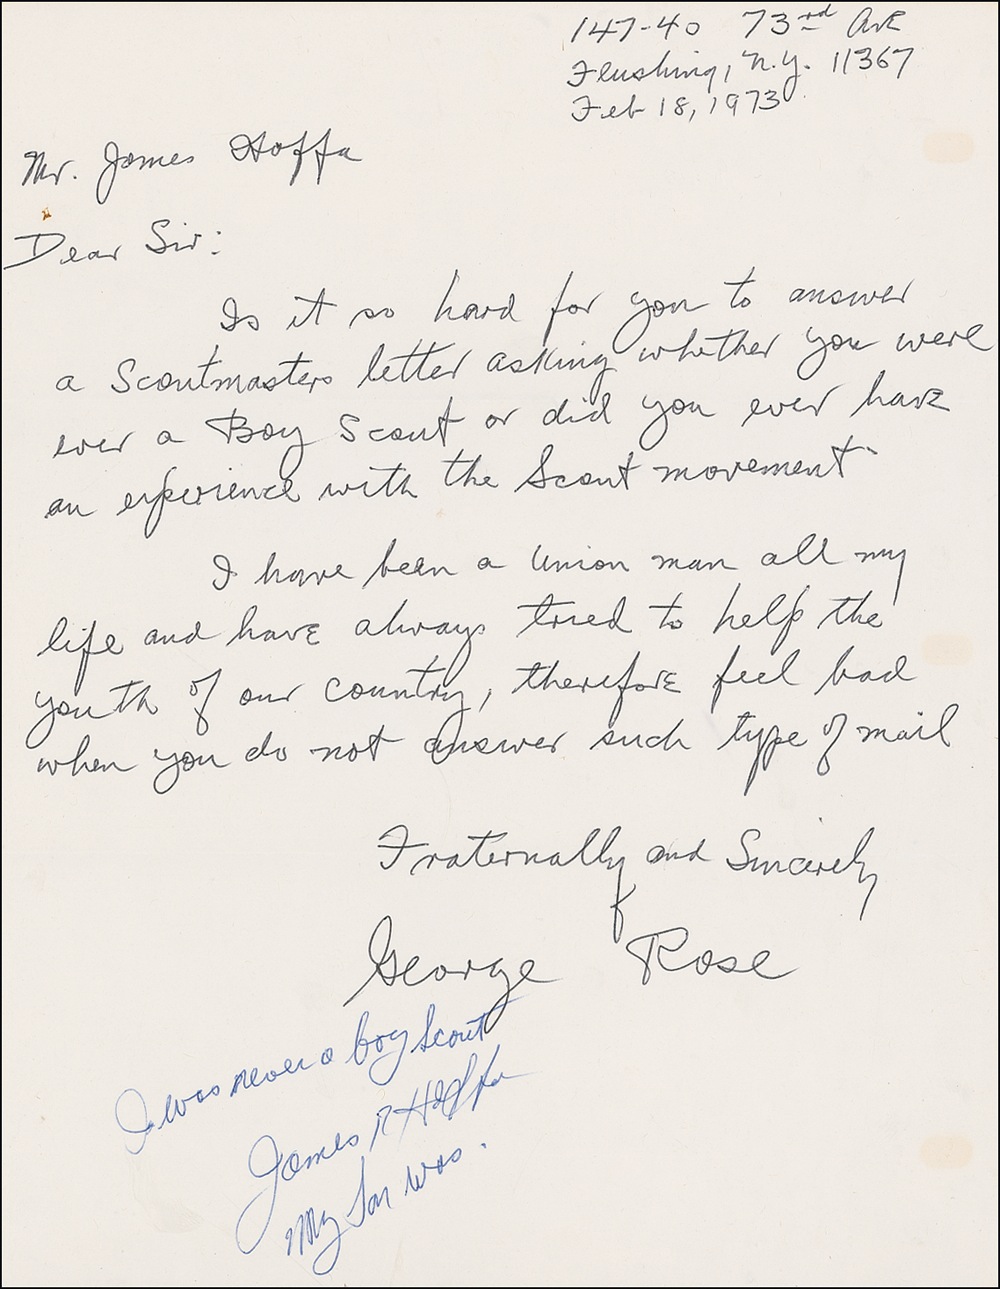 147-40 73rd Ave
Flushing, N.Y. 11367
Feb 18, 1973
Mr. James Hoffa
Dear Sir:
Is it so hard for you to answer
a Scoutmasters letter asking whether you were
ever a Boy Scout or did you ever have
an experience with the Scout movement
I have been a Union man all my
life and have always tried to help the
youth of our country, therefore feel bad
when you do not answer such type of mail
Fraternally and Sincerely
George Rose
I was never a boy Scout
James R Hoffa
My Son was.